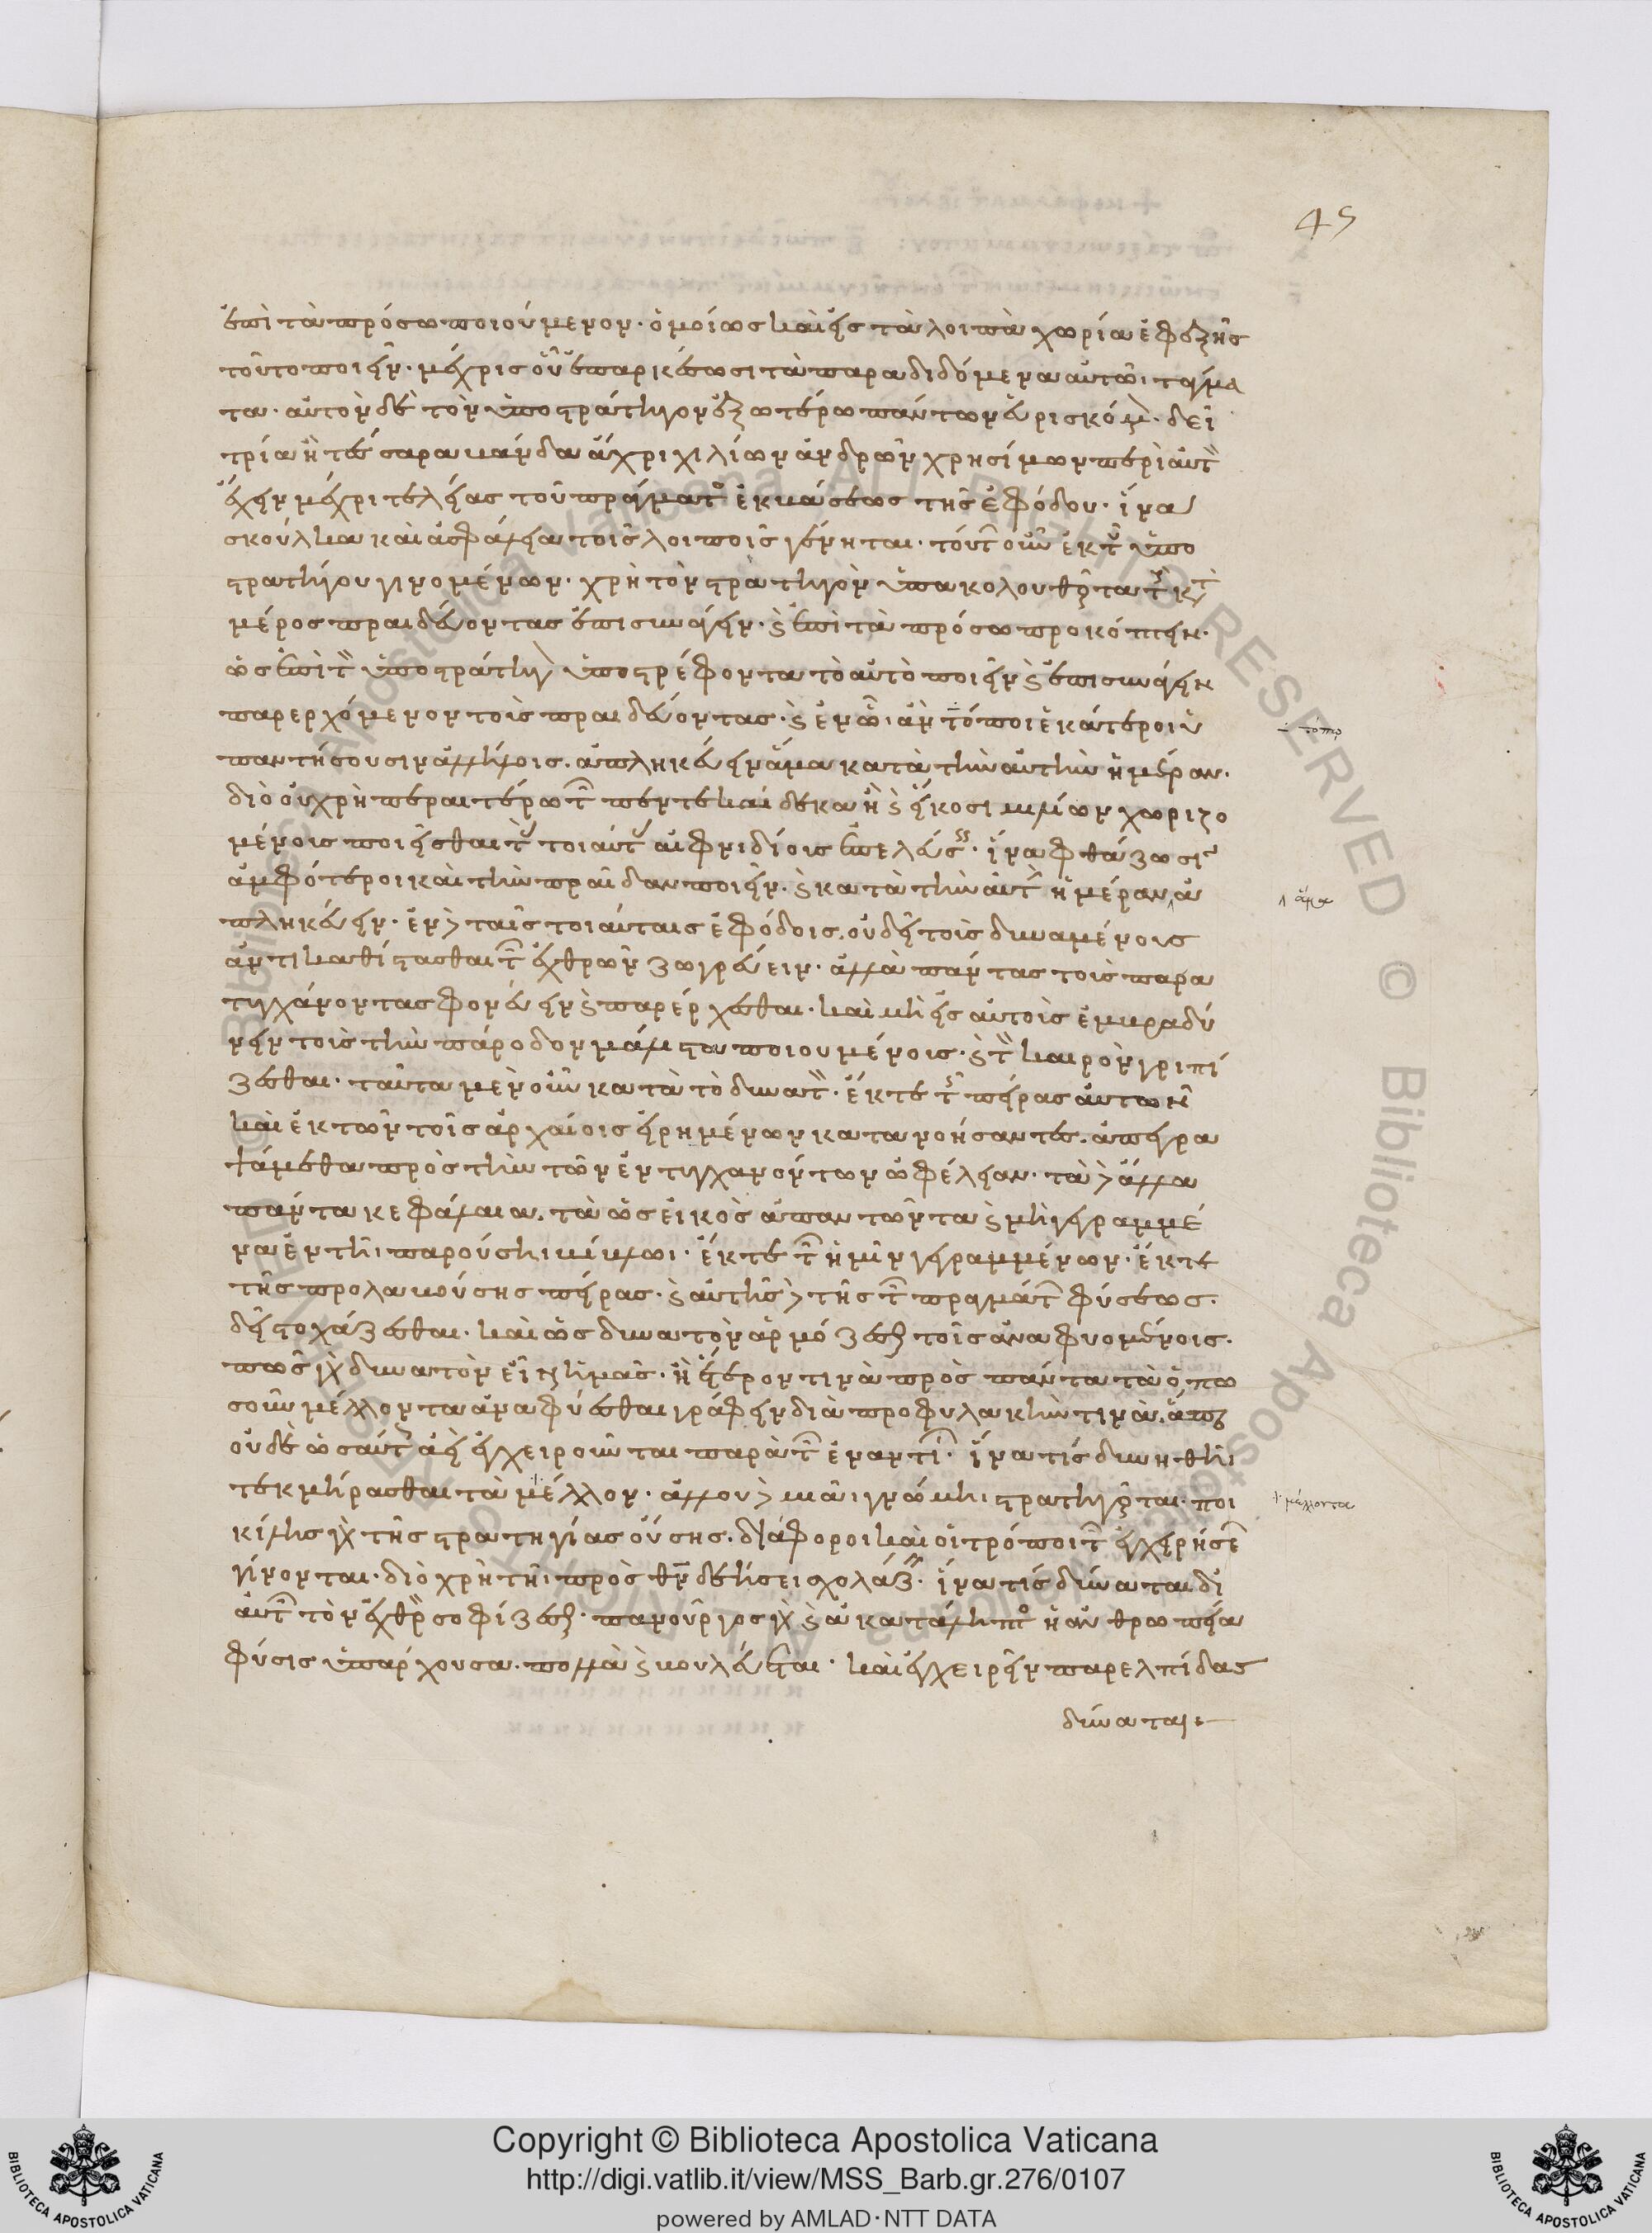 45
ἐπὶ τὰ πρόσω ποιούμενον · ὁμοίως καὶ εἰς τὰ λοιπὰ χωρία ἐφεξῆς
τοῦτο ποιεῖν · μέχρις οὗ ἐπαρκέσωσι τὰ παραδιδόμενα αὐτῶ τάγμα
τα · αὐτὸν δὲ τὸν ὑποστράτηγον ἐξωτέρω πάντων εὑρισκόμεν · δεῖ
τρία ἢ τέσσαρα βάνδα ἄχρι χιλίων ἀνδρῶν χρησίμων περὶ αὐτὸν
ἔχειν μέχρι τελείας τοῦ πράγματος ἐκβάσεως τῆς ἐφόδου · ἵνα
σκοῦλκα καὶ ἀσφάλεια τοῖς λοιποῖς γένηται · τούτων οὖν ἐκ τοῦ ὑπο
στρατήγου γινομένων · χρὴ τὸν στρατηγὸν ὑπακολουθοῦντα τοὺς κατὰ
μέρος πραιδεύοντας ἐπισυνάγειν · καὶ ἐπὶ τὰ πρόσω προκόπτειν ·
ὡς ἐπὶ τὸν ὑποστράτηγον ὑποστρέφοντα τὸ αὐτὸ ποιεῖν καὶ ἐπισυνάγειν
παρερχόμενον τοὺς πραιδεύοντας · καὶ ἐν ᾧ ἂν τόποι ἑκάτεροι ὑ
παντήσουσιν ἀλλήλοις · ἀπληκεύειν ἅμα κατὰ τὴν αὐτὴν ἡμέραν ·
- τόπω
διὸ οὐ χρὴ περαιτέρω τῶν πέντε καὶ δέκα ἢ καὶ εἴκοσι μιλίων χωριζο
μένους ποιεῖσθαι τὰς τοιαύτας αἰφνιδίους ἐπελεύσεις · ἵνα φθάζωσιν
ἀμφότεροι καὶ τὴν πραῖδαν ποιεῖν · καὶ κατὰ τὴν αὐτὴν ἡμέραν ἀ
ἅμα
πληκεύειν · ἐν δὲ ταῖς τοιαύταις ἐφόδοις · οὐ δεῖ τοὺς δυναμένους
ἀντικαθίστασθαι τῶν ἐχθρῶν ζωγρεύειν · ἀλλὰ πάντας τοὺς παρα
τυγχάνοντας φονεύειν καὶ παρέρχεσθαι · καὶ μὴ εἰς αὐτοὺς ἐμβραδύ
νειν τοὺς τὴν πάροδον μάλιστα ποιουμένους · καὶ τὸν καιρὸν γριπί
ζεσθαι · ταῦτα μὲν οὖν κατὰ τὸ δυνατὸν · ἔκ τε τῆς πείρας αὐτῶν
καὶ ἐκ τῶν τοῖς ἀρχαίοις εἰρημένων κατανοήσαντες · ἀπεγρα
ψάμεθα πρὸς τὴν τῶν ἐντυγχανόντων ὠφέλειαν · τὰ δὲ ἄλλα
πάντα κεφάλαια · τὰ ὡς εἰκὸς ἀπαντῶντα καὶ μὴ γεγραμμέ
να ἐν τῆι παρούσηι βίβλωι · ἔκ τε τῶν ἡμῖν γεγραμμένων · ἔκ τε
τῆς προλαβούσης πείρας · καὶ αὐτῆς δὲ τῆς τῶν πραγμάτων φύσεως ·
δεῖ στοχάζεσθαι · καὶ ὡς δυνατὸν ἁρμόζεσθαι τοῖς ἀναφυομένοις ·
πῶς γὰρ δυνατὸν εἶναι ἡμᾶς · ἢ ἕτερόν τινα πρὸς πάντα τὰ ὁπω
σοῦν μέλλοντα ἀναφύεσθαι γράφειν διὰ προφυλακήν τινα · ἅπερ
οὐδὲ ὡσαύτως ἀεὶ ἐγχειροῦνται παρὰ τῶν ἐναντίων · ἵνα τις δυνηθῆι
τεκμήρασθαι τὰ μέλλον · ἀλλ' οὐδὲ μιᾶι γνώμηι στρατηγοῦνται · ποι
+ μέλλοντα
κίλης γὰρ τῆς στρατηγίας οὔσης · διάφοροι καὶ οἱ τρόποι τῶν ἐγχειρήσεων
γίνονται · διὸ χρὴ τῆι πρὸς θεὸν δεήσει σχολάζειν · ἵνα τις δύναται δι
αὐτῶν τὸν ἐχθρὸν σοφίζεσθαι · πανοῦργος γὰρ καὶ ἀκατάληπτος ἡ ἀνθρωπεία
φύσις ὑπάρχουσα · πολλὰ καὶ βουλεύεται · καὶ ἐγχειρεῖν παρ' ἐλπίδας
δύναται
Copyright © Biblioteca Apostolica Vaticana
http://digi.vatlib.it/view/MSS_Barb.gr.276/0107
powered by AMLAD·NTT DATA